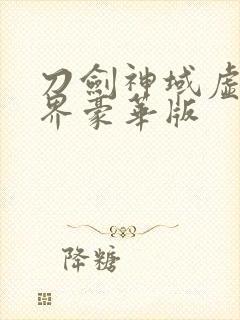 刀劍神域虛
界豪華版
降糖